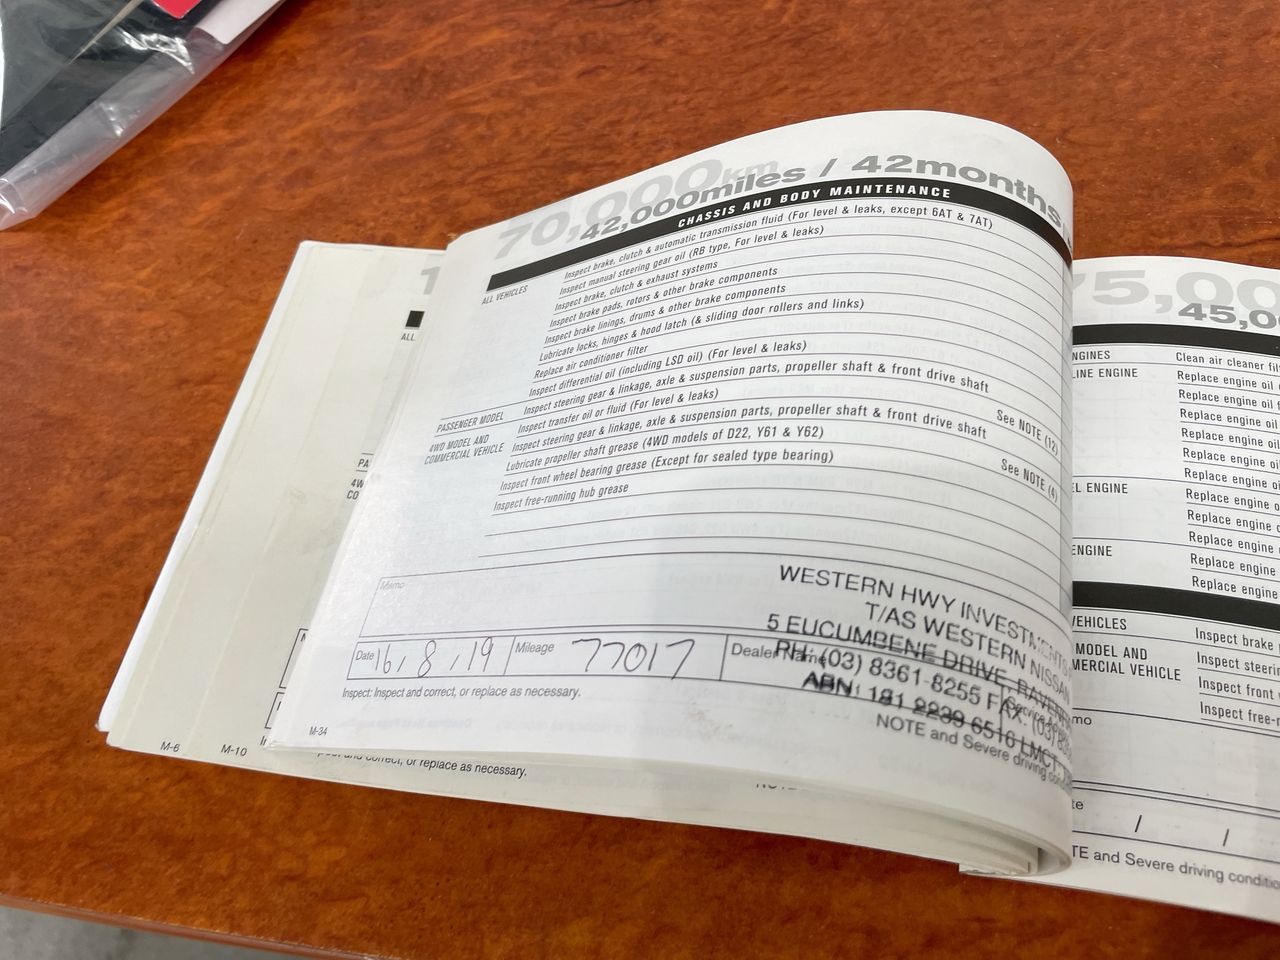 70,000km
42,000miles / 42months
CHASSIS AND BODY MAINTENANCE
ALL VEHICLES
Inspect brake, clutch & automatic transmission fluid (For level & leaks, except 6AT & 7AT)
Inspect manual steering gear oil (RB type, For level & leaks)
Inspect brake, clutch & exhaust systems
Inspect brake pads, rotors & other brake components
Inspect brake linings, drums & other brake components
Lubricate locks, hinges & hood latch (& sliding door rollers and links)
Replace air conditioner filter
Inspect differential oil (including LSD oil) (For level & leaks)
PASSENGER MODEL
Inspect steering gear & linkage, axle & suspension parts, propeller shaft & front drive shaft
See NOTE (12)
4WD MODEL AND
COMMERCIAL VEHICLE
Inspect transfer oil or fluid (For level & leaks)
Inspect steering gear & linkage, axle & suspension parts, propeller shaft & front drive shaft
See NOTE (4)
Lubricate propeller shaft grease (4WD models of D22, Y61 & Y62)
Inspect front wheel bearing grease (Except for sealed type bearing)
Inspect free-running hub grease
Memo
WESTERN HWY INVESTMENTS
T/AS WESTERN NISSAN
5 EUCUMBENE DRIVE, RAVEN
PH: (03) 8361-8255 FAX: (03) 
ABN: 181 2239 6516 LMCT
Date 16 / 8 / 19
Mileage 77017
Dealer Name
Inspect: Inspect and correct, or replace as necessary.
NOTE and Severe driving
M-34
M-6
M-10
and correct, or replace as necessary.
ALL
PA
4W
CO
75,00
45,0
NGINES
Clean air cleaner fil
LINE ENGINE
Replace engine oil
Replace engine oil f
Replace engine oil
Replace engine oil
Replace engine oil
Replace engine oi
EL ENGINE
Replace engine o
Replace engine o
Replace engine
ENGINE
Replace engine
Replace engine
VEHICLES
Inspect brake
MODEL AND
MERCIAL VEHICLE
Inspect steerin
Inspect front
Inspect free-r
mo
te / /
TE and Severe driving conditio